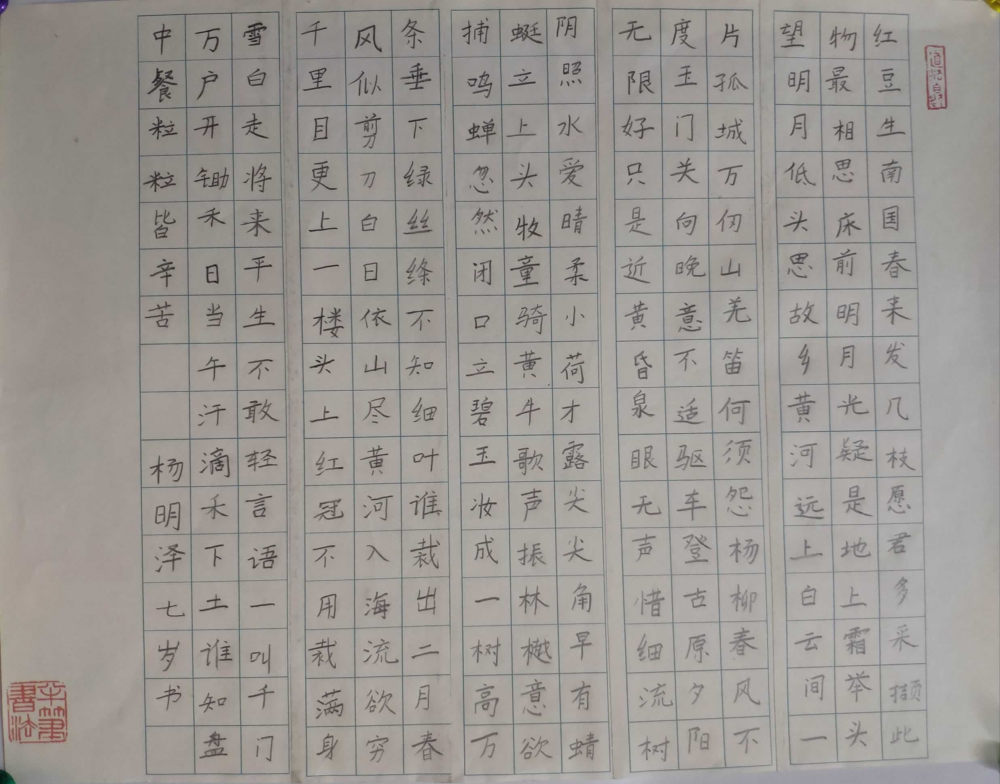 红豆生南国春来发几枝愿君多采撷此
物最相思床前明月光疑是地上霜举头
望明月低头思故乡黄河远上白云间一
片孤城万仞山羌笛何须怨杨柳春风不
度玉门关向晚意不适驱车登古原夕阳
无限好只是近黄昏泉眼无声惜细流树
阴照水爱晴柔小荷才露尖尖角早有蜻
蜓立上头牧童骑黄牛歌声振林樾意欲
捕鸣蝉忽然闭口立碧玉妆成一树高万
条垂下绿丝绦不知细叶谁栽出二月春
风似剪刀白日依山尽黄河入海流欲穷
千里目更上一楼头上红冠不用裁满身
雪白走将来平生不敢轻言语一叫千门
万户开锄禾日当午汗滴禾下土谁知盘
中餐粒粒皆辛苦 杨明泽七岁书